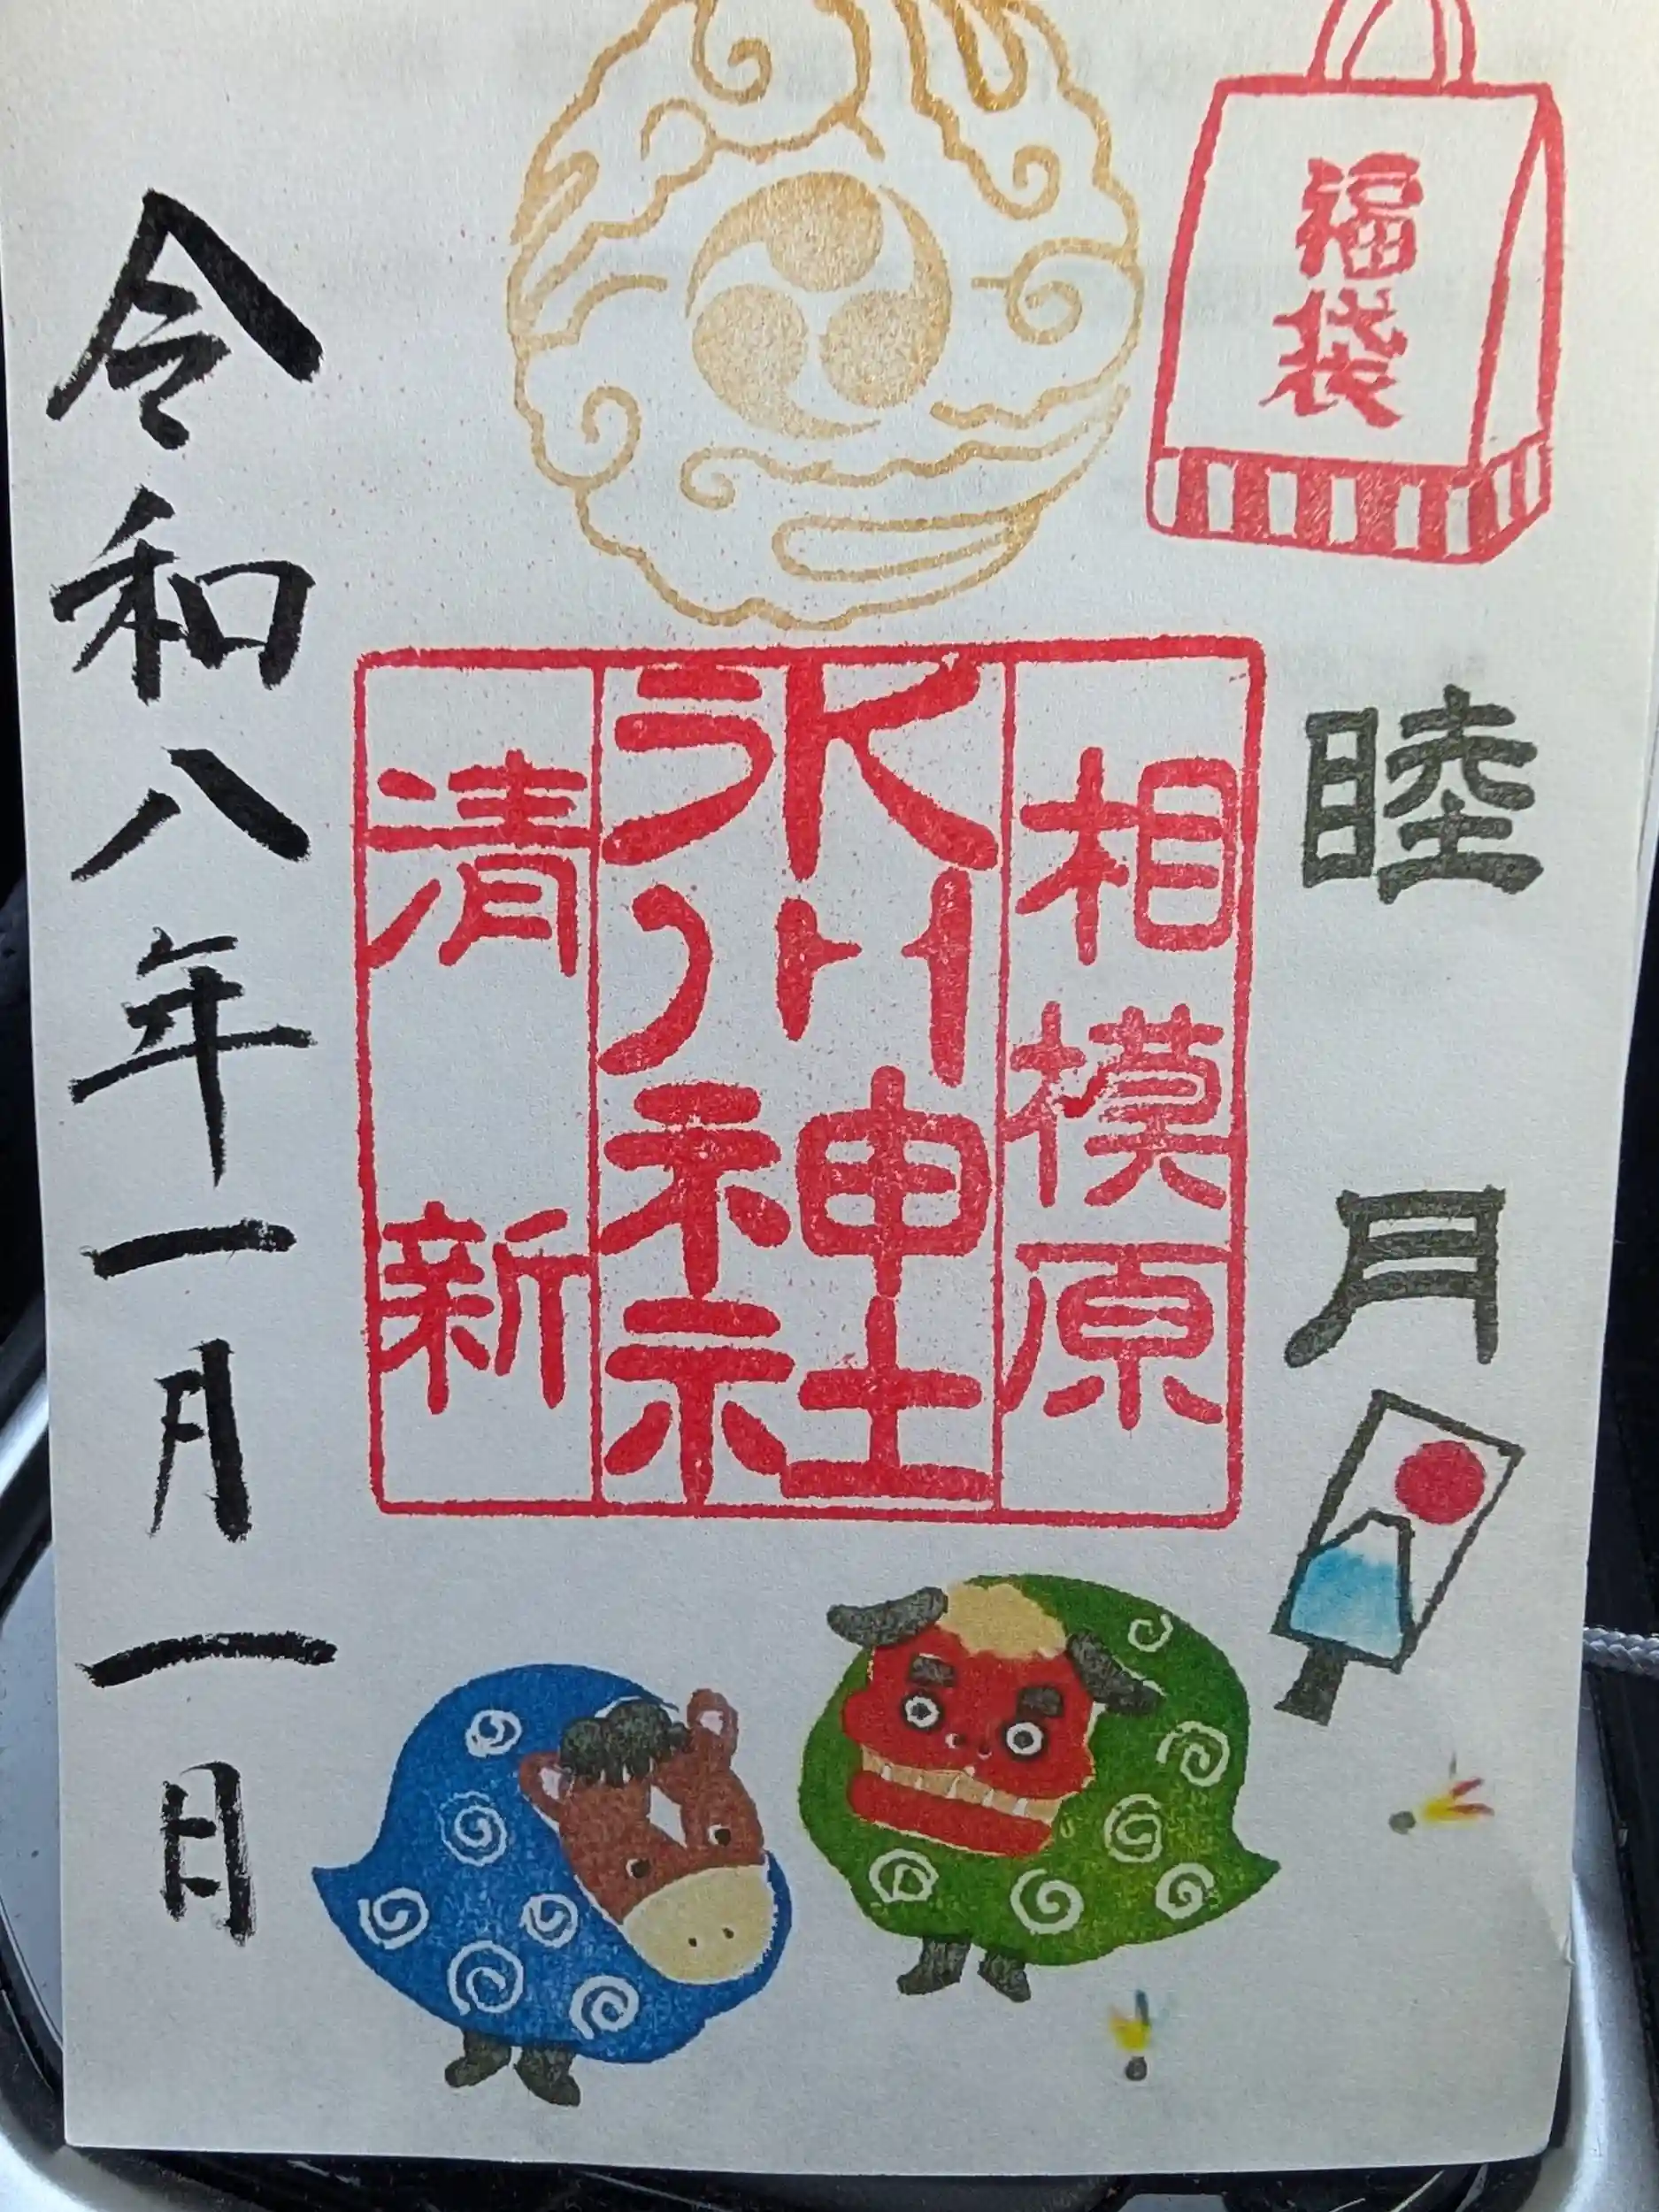 福袋
睦月
相模原
氷川神社
清新
令和八年一月一日